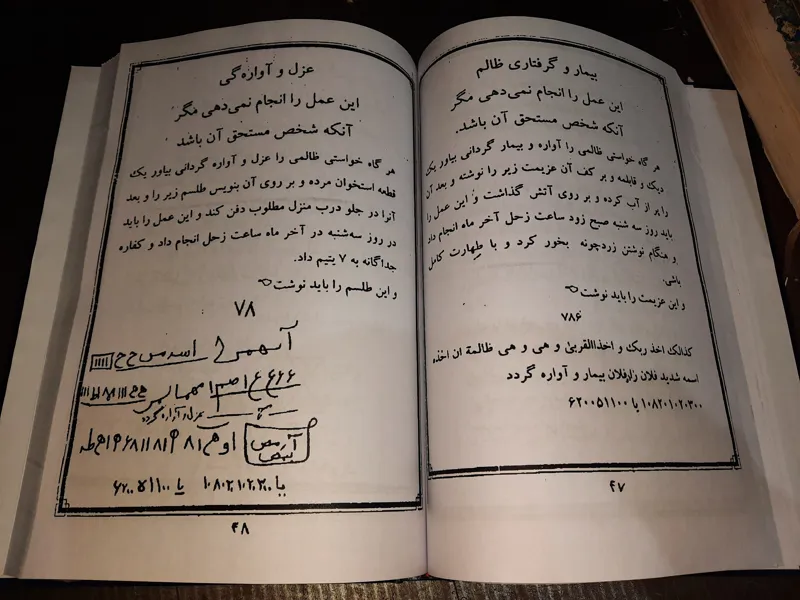 بیمار و گرفتاری ظالم
این عمل را انجام نمی‌دهی مگر
آنکه شخص مستحق آن باشد.
هر گاه خواستی ظالمی را آواره و بیمار گردانی بیاور یک
دیک و قابلمه و بر کف آن عزیمت زیر را نوشته و بعد آن
را پر از آب کرده و بر روی آتش گذاشت و این عمل را
باید روز سه شنبه صبح زود ساعت زحل آخر ماه انجام داد
و هنگام نوشتن زردچونه بخور کرد و با طهارت کامل
باشی.
و این عزیمت را باید نوشت
۷۸۶
کذالك اخذ ربك و اخذاالقری و هی و هی ظالمة ان اخذه
اسمه شدید فلان زاد فلان بیمار و آواره گردد
۱۰۸۲۰۱۰۲۰۳۰۰ یا ۶۲۰۰۵۱۱۰۰
۴۷
عزل و آواره‌گی
این عمل را انجام نمی‌دهی مگر
آنکه شخص مستحق آن باشد
هر گاه خواستی ظالمی را عزل و آواره گردانی بیاور یک
قطعه استخوان مرده و بر روی آن بنویس طلسم زیر را و بعد
آنرا در جلو درب منزل مطلوب دفن کند و این عمل را باید
در روز سه‌شنبه در آخر ماه ساعت زحل انجام داد و کفاره
جداگانه به ۷ یتیم داد.
و این طلسم را باید نوشت
۷۸
عزل و آواره گردد
۴۸